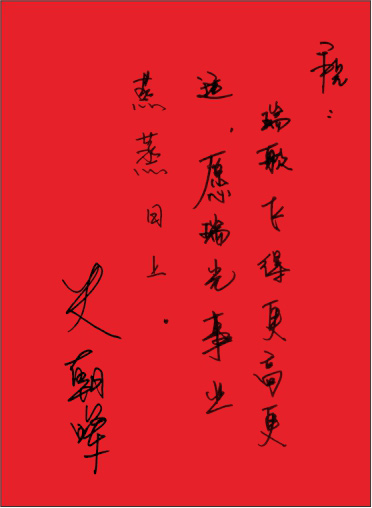 祝：
瑞飞得更高更
远，愿瑞光事业
蒸蒸日上.
史朝晖